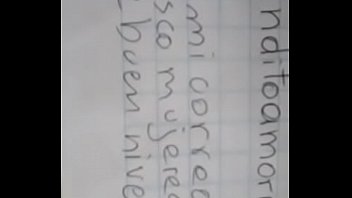 nditoamor
mi corre
sco mujere
buen nive